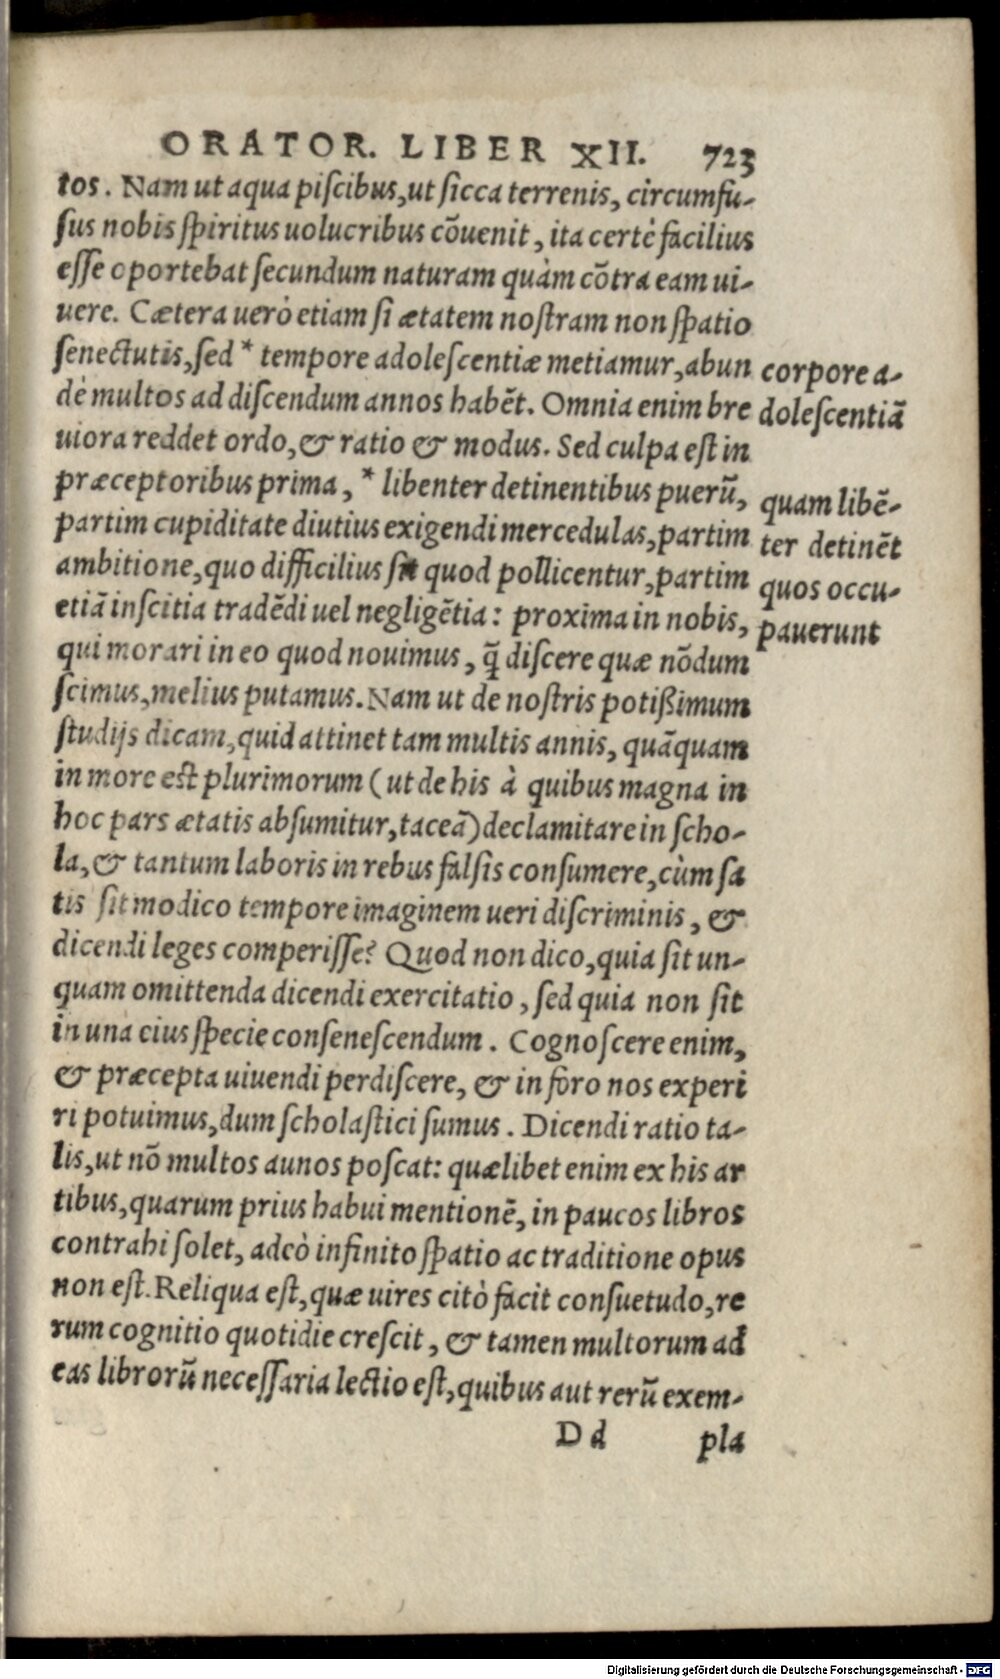 ORATOR. LIBER XII. 723
tos. Nam ut aqua piſcibus, ut ſicca terrenis, circumfu-
ſus nobis ſpiritus uolucribus cõuenit, ita certè facilius
eſſe oportebat ſecundum naturam quàm cõtra eam ui-
uere. Cætera uerò etiam ſi ætatem noſtram non ſpatio
ſenectutis, ſed * tempore adoleſcentiæ metiamur, abun
dè multos ad diſcendum annos habẽt. Omnia enim bre
uiora reddet ordo, & ratio & modus. Sed culpa eſt in
præceptoribus prima, * libenter detinentibus puerũ,
partim cupiditate diutius exigendi mercedulas, partim
ambitione, quo difficilius ſit quod pollicentur, partim
etiã inſcitia tradẽdi uel negligẽtia: proxima in nobis,
qui morari in eo quod nouimus, q̃ diſcere quæ nõdum
ſcimus, melius putamus. Nam ut de noſtris potißimum
ſtudijs dicam, quid attinet tam multis annis, quãquam
in more eſt plurimorum (ut de his à quibus magna in
hoc pars ætatis abſumitur, taceã) declamitare in ſcho-
la, & tantum laboris in rebus falſis conſumere, cùm ſa
tis ſit modico tempore imaginem ueri diſcriminis, &
dicendi leges comperiſſe? Quod non dico, quia ſit un-
quam omittenda dicendi exercitatio, ſed quia non ſit
in una eius ſpecie conſeneſcendum. Cognoſcere enim,
& præcepta uiuendi perdiſcere, & in foro nos experi
ri potuimus, dum ſcholaſtici ſumus. Dicendi ratio ta-
lis, ut nõ multos aunos poſcat: quælibet enim ex his ar
tibus, quarum prius habui mentionẽ, in paucos libros
contrahi ſolet, adeò infinito ſpatio ac traditione opus
non eſt. Reliqua eſt, quæ uires citò facit conſuetudo, re
rum cognitio quotidie creſcit, & tamen multorum ad
eas librorũ neceſſaria lectio eſt, quibus aut rerũ exem-
Dd pla
corpore a-
doleſcentiã
quam libẽ-
ter detinẽt
quos occu-
pauerunt
Digitalisierung gefördert durch die Deutsche Forschungsgemeinschaft - DFG